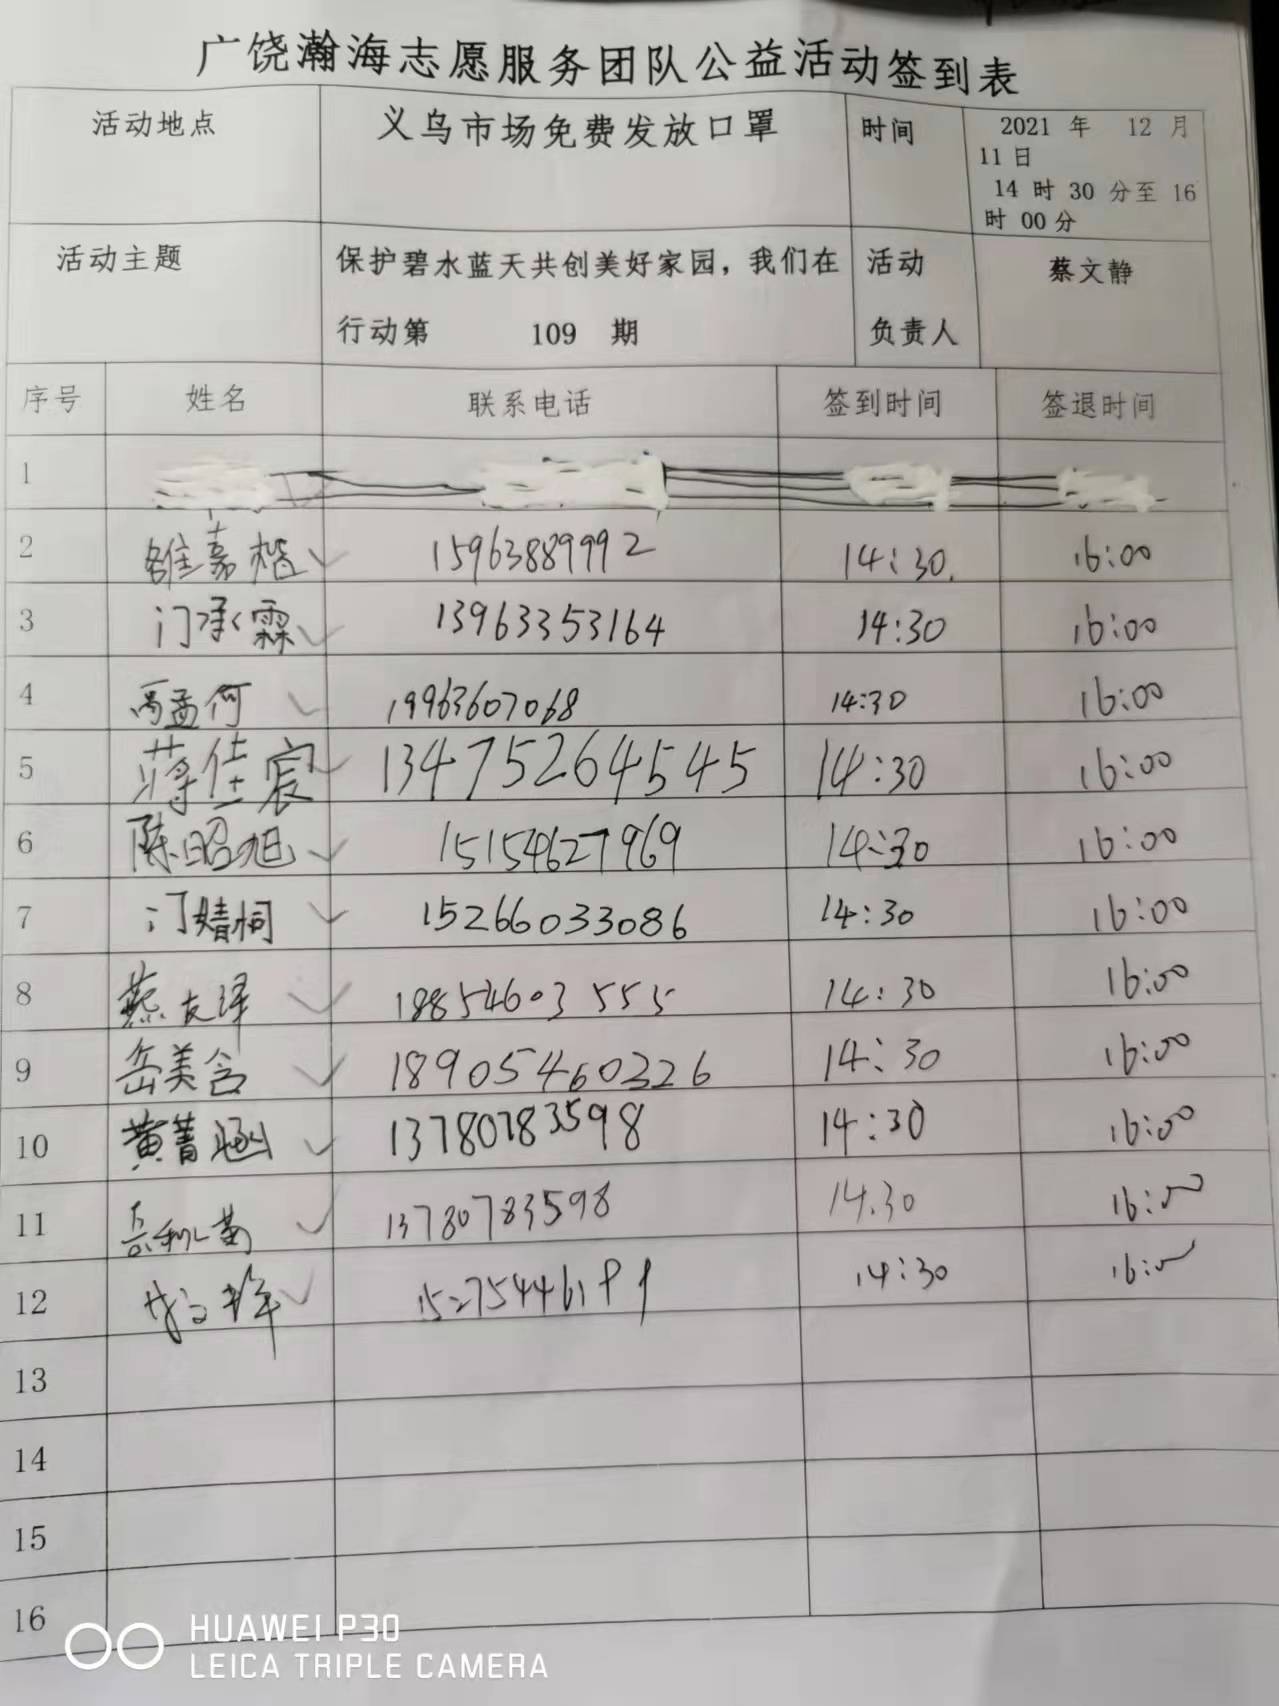 广饶瀚海志愿服务团队公益活动签到表
活动地点 义乌市场免费发放口罩 时间 2021 年 12 月
11 日
14 时 30 分至 16
时 00 分
活动主题 保护碧水蓝天共创美好家园，我们在 活动 蔡文静
行动第 109 期 负责人
序号 姓名 联系电话 签到时间 签退时间
1
2 嘉楷 15963889992 14:30. 16:00
3 门承霖 13963353164 14:30 16:00
4 孟何 19963607068 14:30 16:00
5 蒋佳宸 13475264545 14:30 16:00
6 陈昭旭 15154627969 14:30 16:00
7 门婧桐 15266033086 14:30 16:00
8 燕友泽 18854603555 14:30 16:00
9 岳美含 18905460326 14:30 16:00
10 黄菁涵 13780783598 14:30 16:00
11 13780783598 14.30 16:00
12 14:30 16:00
13
14
15
16
HUAWEI P30
LEICA TRIPLE CAMERA